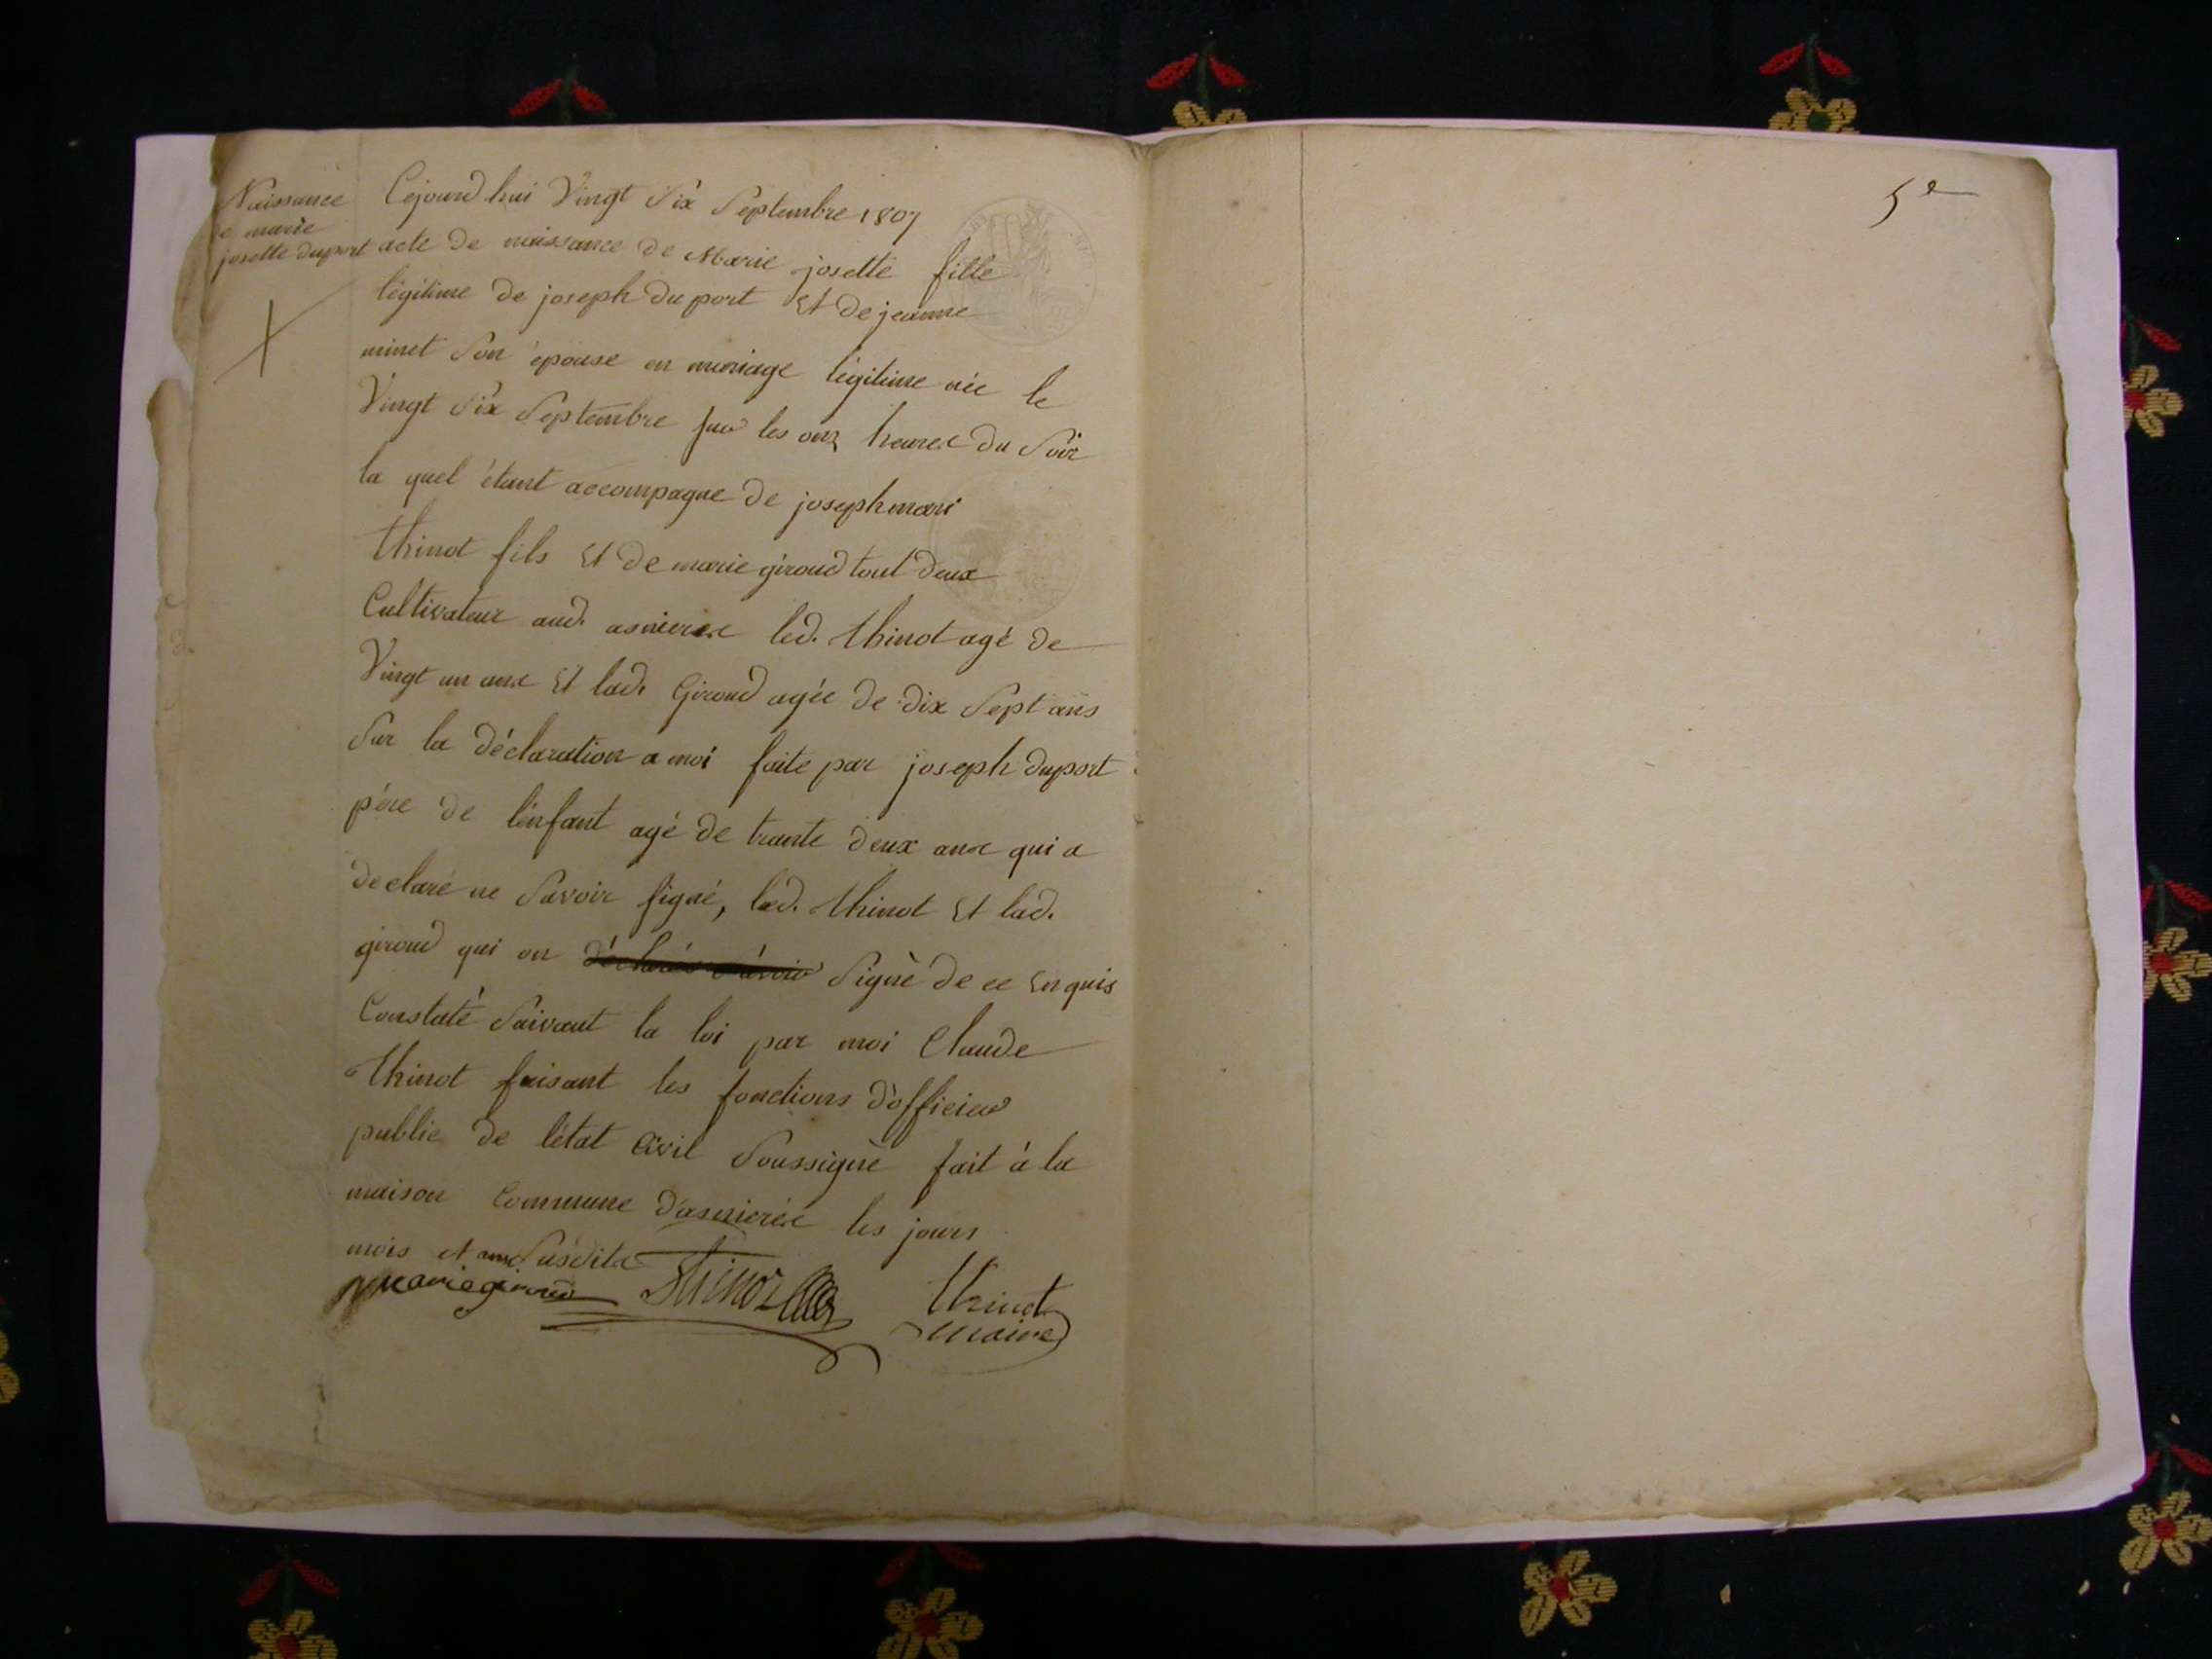 Naissance
e marie
josette duport
Cejourd hui Vingt Six Septembre 1807
acte de naissance de Marie josette fille
légitime de joseph du port Et de jeanne
minet Son épouse en mariage légitime née le
Vingt Six Septembre sur les onz heures du Soir
la quel étant accompagne de joseph mari
thinot fils Et de marie giroud tout deux
Cultivateur aud. asnieres led. thinot agé de
Vingt un ans Et lad. Giroud agée de dix Sept ans
Sur la déclaration a moi faite par joseph duport
père de l'enfant agé de trante deux ans qui a
declaré ne Savoir signé, led. thinot Et lad.
giroud qui on déclarés Savoir Signè de ce Enquis
Constatè Suivant la loi par moi Claude
thinot faisant les fonctions d'officier
public de l'état Civil Soussignè fait à la
maison Commune d'asnieres les jours
mois et an Susdits
marie giroud thinot thinot
maire
5e